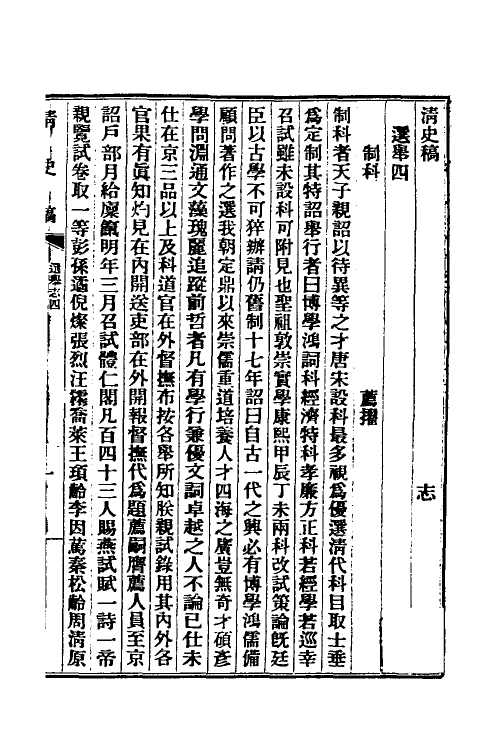 清史稿 志
選舉四
制科 薦擢
制科者天子親詔以待異等之才唐宋設科最多視爲優選清代科目取士垂
爲定制其特詔舉行者曰博學鴻詞科經濟特科孝廉方正科若經學若巡幸
召試雖未設科可附見也聖祖敦崇實學康熙甲辰丁未兩科改試策論旣廷
臣以古學不可猝辦請仍舊制十七年詔曰自古一代之興必有博學鴻儒備
顧問著作之選我朝定鼎以來崇儒重道培養人才四海之廣豈無奇才碩彥
學問淵通文藻瑰麗追蹤前哲者凡有學行兼優文詞卓越之人不論已仕未
仕在京三品以上及科道官在外督撫布按各舉所知朕親試錄用其內外各
官果有眞知灼見在內開送吏部在外開報督撫代爲題薦嗣膺薦人員至京
詔戶部月給廩餼明年三月召試體仁閣凡百四十三人賜燕試賦一詩一帝
親覽試卷取一等彭孫遹倪燦張烈汪霦喬萊王頊齡李因篤秦松齡周清原
清史稿 選舉志四 一